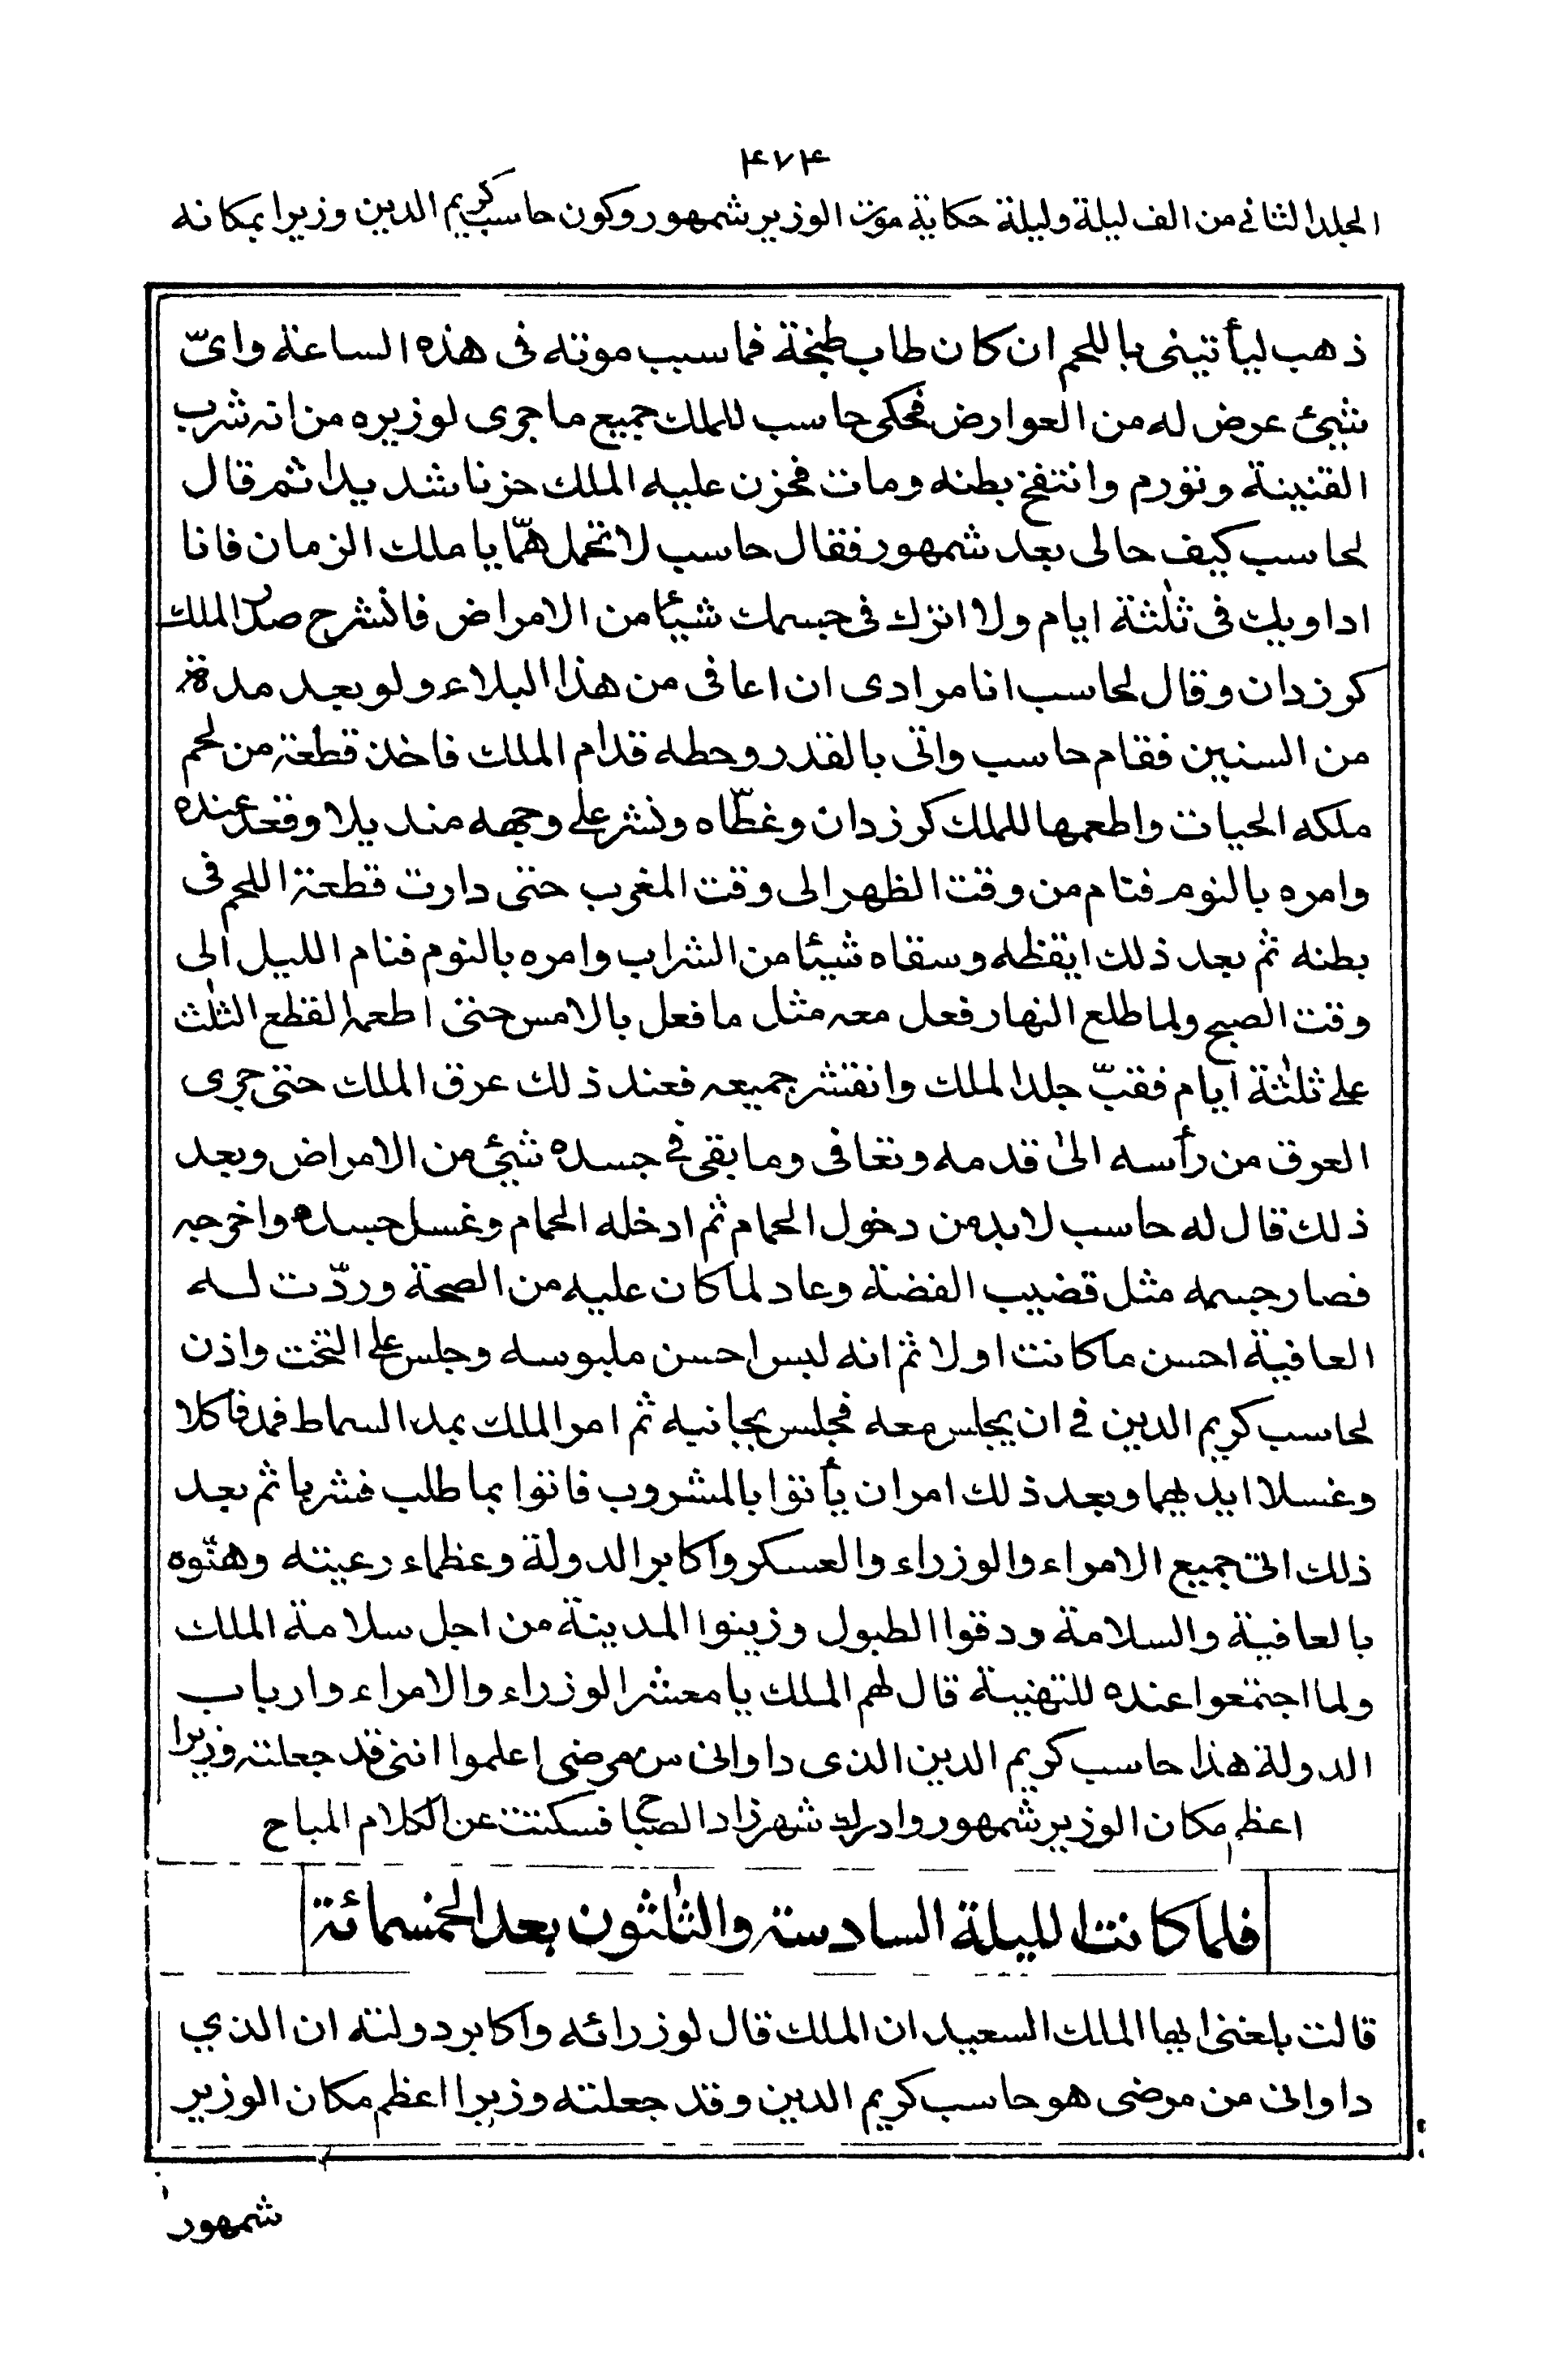 ۴۷۴
المجلد الثانے من الف ليلة وليلة حكاية موت الوزير شمهور وكون حاسب كريم الدين وزيرا بمكانه
ذهب ليأتينى باللحم ان كان طاب طبخة فما سبب موته فى هذه الساعة واىّ
شيئ عرض له من العوارض فحكى حاسب للملك جميع ما جرى لوزيره من انه شرب
القنينة وتورم وانتفخ بطنه ومات فحزن عليه الملك حزنا شديدا ثم قال
لحاسب كيف حالى بعد شمهور فقال حاسب لا تحمل همّا يا ملك الزمان فانا
اداويك فى ثلٰثة ايام ولا اترك فى جسمك شيئا من الامراض فانشرح صدر الملك
كرزدان وقال لحاسب انا مرادى ان اعافى من هذا البلاء ولو بعد مدة
من السنين فقام حاسب واتى بالقدر وحطه قدام الملك فاخذ قطعة من لحم
ملكه الحيات واطعمها للملك كرزدان وغطّاه ونشر على وجهه منديلا وقعد عنده
وامره بالنوم فنام من وقت الظهر الى وقت المغرب حتى دارت قطعة اللحم فى
بطنه ثم بعد ذلك ايقظه وسقاه شيئا من الشراب وامره بالنوم فنام الليل الى
وقت الصبح ولما طلع النهار فعل معه مثل ما فعل بالامس حتى اطعمه القطع الثلٰث
على ثلٰثة ايام فقبّ جلد الملك وانقشر جميعه فعند ذلك عرق الملك حتى جرى
العرق من رأسه الىٰ قدمه وتعافى وما بقى فے جسده شيئ من الامراض وبعد
ذلك قال له حاسب لا بد من دخول الحمام ثم ادخله الحمام وغسل جسده واخرجه
فصار جسمه مثل قضيب الفضة وعاد لما كان عليه من الصحة وردّت لـه
العافية احسن ما كانت اولا ثم انه لبس احسن ملبوسه وجلس على التخت واذن
لحاسب كريم الدين فے ان يجلس معه فجلس بجانبه ثم امر الملك بمد السماط فمد فاكلا
وغسلا ايديهما وبعد ذلك امر ان يأتوا بالمشروب فاتوا بما طلب فشربا ثم بعد
ذلك اتى جميع الامراء والوزراء والعسكر واكابر الدولة وعظماء رعيته وهنّوه
بالعافية والسلامة ودقوا الطبول وزينوا المدينة من اجل سلامة الملك
ولما اجتمعوا عنده للتهنية قال لهم الملك يا معشر الوزراء والامراء وارباب
الدولة هذا حاسب كريم الدين الذى داوانى من مرضى اعلموا اننى قد جعلته وزيرا
اعظم مكان الوزير شمهور وادرك شهرزاد الصباح فسكتت عن الكلام المباح
فلما كانت الليلة السادسة والثلٰثون بعد الخمسمائة
قالت بلغنى ايها الملك السعيد ان الملك قال لوزرائه واكابر دولته ان الذي
داوانى من مرضى هو حاسب كريم الدين وقد جعلته وزيرا اعظم مكان الوزير
شمهور